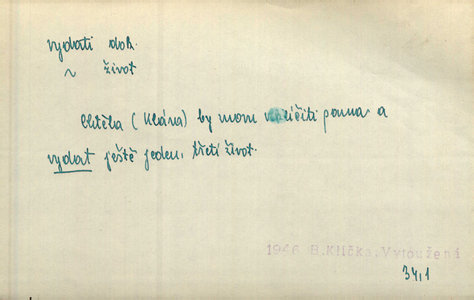 vydati dok.
~ život
Chtěla (Klára) by mom líčiti panna a
vydat ještě jeden, třetí život.
1946 B.Klička, Vytoužení
34,1